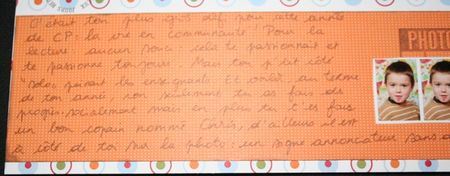 C'était ton plus gros défi pour cette année
de CP: la vie en communauté! Pour la
lecture aucun souci: cela te passionnait et
te passionne toujours. Mais ton p'tit côté
"solo" peinait les enseignants. Et voilà, au terme
de ton année, non seulement tu as fais des
progrès socialement mais en plus tu t'es fais
un bon copain nommé Chris, d'ailleurs il est
à côté de toi sur la photo: un signe annonciateur sans
PHOTO